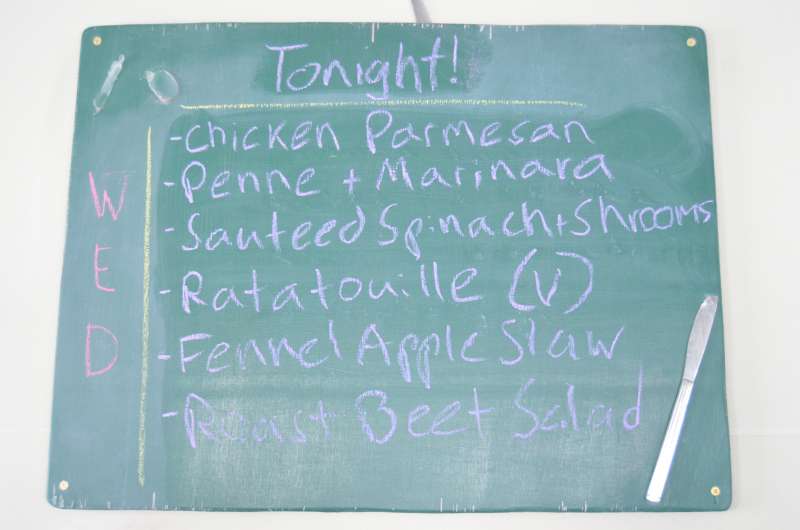 Tonight!
WED
-Chicken Parmesan
-Penne + Marinara
-Sauteed Spinach + Shrooms
-Ratatouille (V)
-Fennel Apple Slaw
-Roast Beet Salad